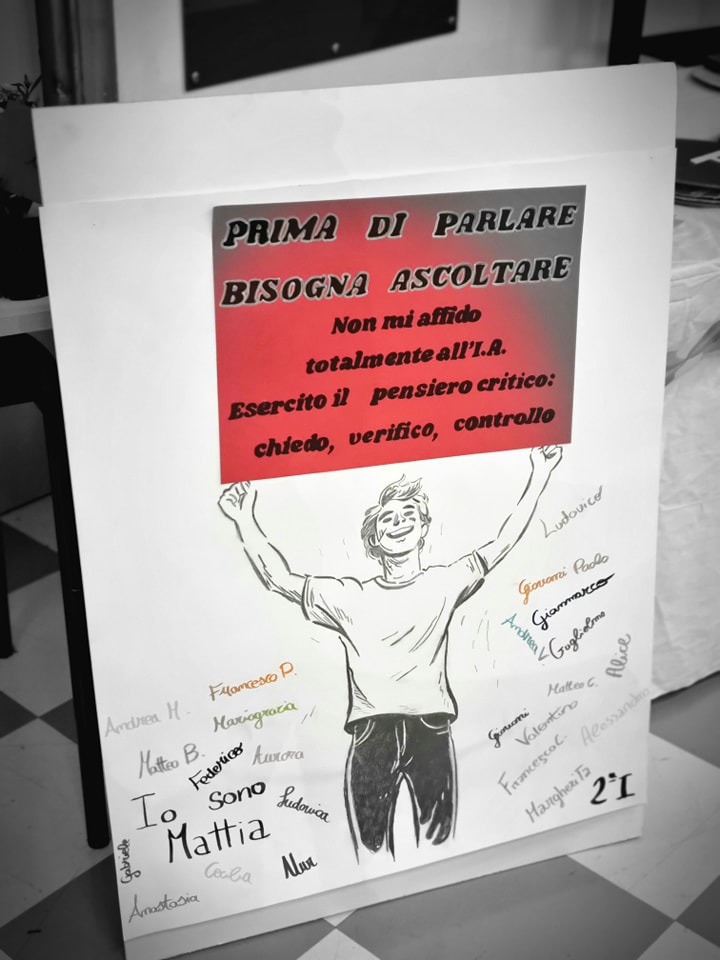 PRIMA DI PARLARE
BISOGNA ASCOLTARE
Non mi affido
totalmente all'I.A.
Esercito il pensiero critico:
chiedo, verifico, controllo
Ludovico
Giovanni Paolo
Gianmarco
Andrea L.
Guglielmo
Alice
Matteo C.
Giovanni
Valentino
Alessandro
Francesca C.
Margherita
2ªI
Francesco P.
Andrea M.
Mariagrazia
Matteo B.
Federico
Aurora
Io sono
Mattia
Ludovica
Gabriele
Cecilia
Nur
Anastasia